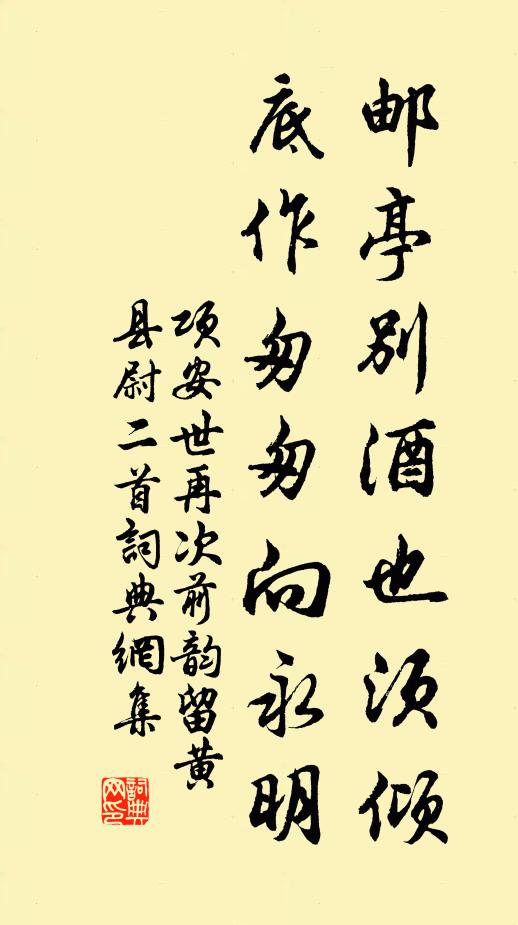 邮亭别酒也须倾
底作匆匆向永明
项安世再次前韵留黄
县尉二首詞典網集
詞典网印